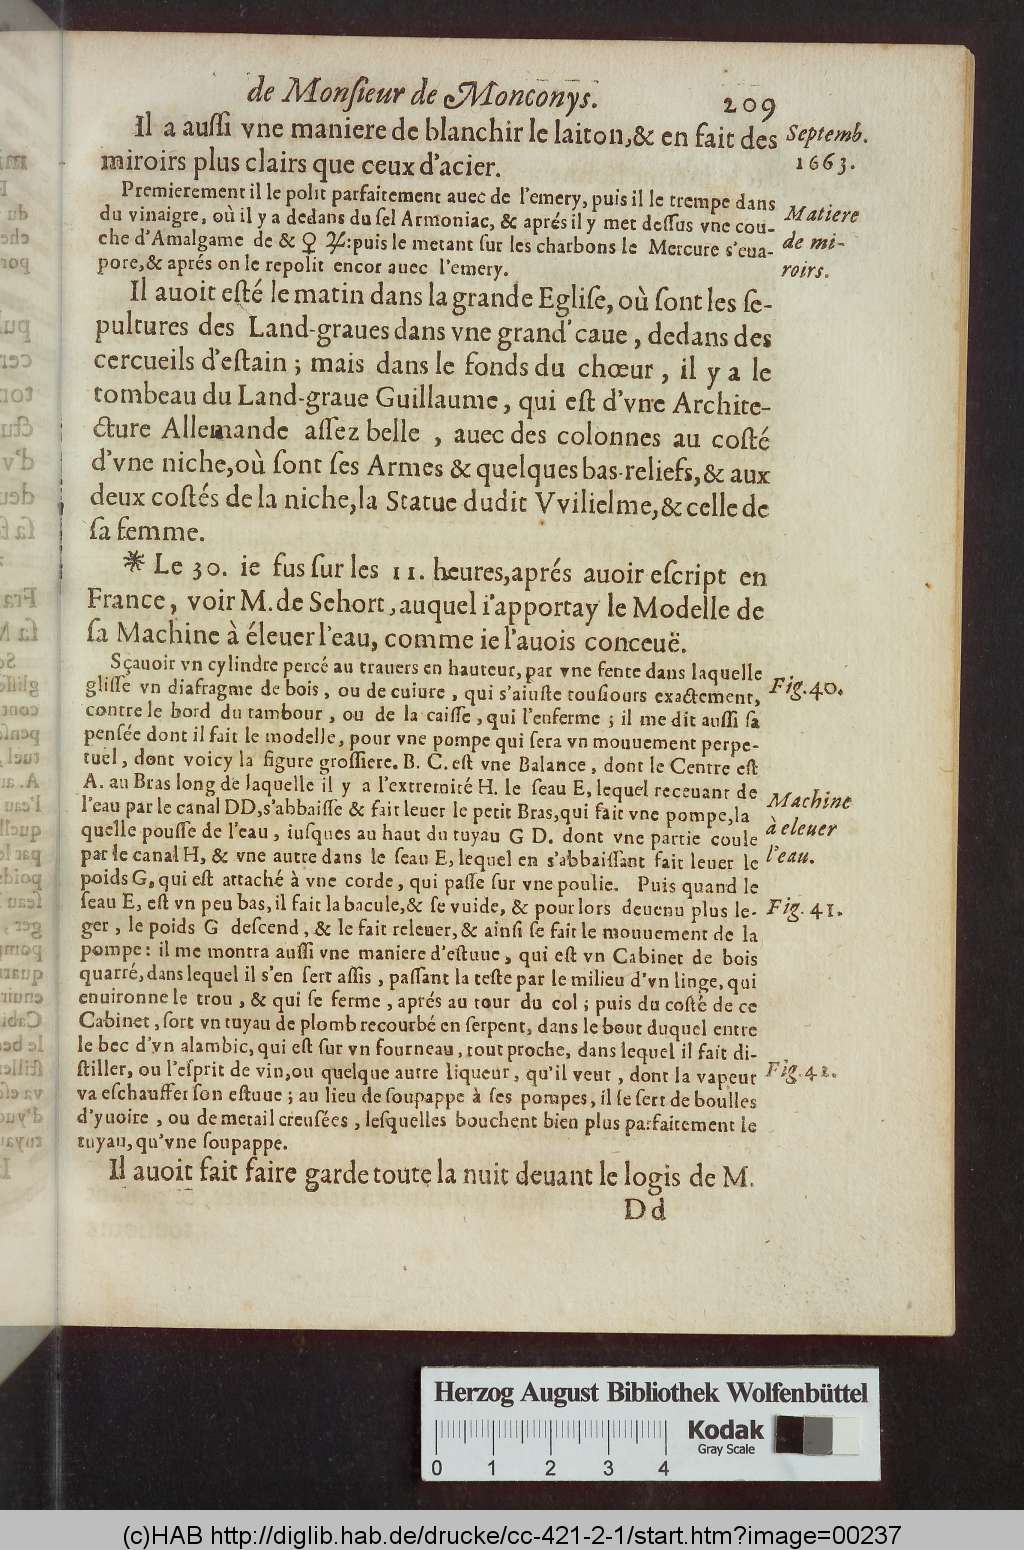 de Monſieur de Monconys. 209
Il a auſſi vne maniere de blanchir le laiton,& en fait des
miroirs plus clairs que ceux d'acier.
Septemb.
1663.
Premierement il le polit parfaitement auec de l'emery, puis il le trempe dans
du vinaigre, où il y a dedans du ſel Armoniac, & aprés il y met deſſus vne cou-
che d'Amalgame de & ♀ ♃:puis le metant ſur les charbons le Mercure s'eua-
pore,& aprés on le repolit encor auec l'emery.
Matiere
de mi-
roirs.
Il auoit eſté le matin dans la grande Egliſe, où ſont les ſe-
pultures des Land-graues dans vne grand' caue, dedans des
cercueils d'eſtain ; mais dans le fonds du chœur, il y a le
tombeau du Land-graue Guillaume, qui eſt d'vne Archite-
cture Allemande aſſez belle, auec des colonnes au coſté
d'vne niche,où ſont ſes Armes & quelques bas-reliefs,& aux
deux coſtés de la niche,la Statue dudit Vvilielme,& celle de
ſa femme.
* Le 30. ie fus ſur les 11. heures,aprés auoir eſcript en
France, voir M. de Sehort, auquel i'apportay le Modelle de
ſa Machine à éleuer l'eau, comme ie l'auois conceuë.
Sçauoir vn cylindre percé au trauers en hauteur, par vne fente dans laquelle
gliſſe vn diafragme de bois, ou de cuiure, qui s'aiuſte touſiours exactement,
contre le bord du tambour, ou de la caiſſe, qui l'enferme ; il me dit auſſi ſa
penſée dont il fait le modelle, pour vne pompe qui ſera vn mouuement perpe-
tuel, dont voicy la figure groſſiere. B. C. eſt vne Balance, dont le Centre eſt
A. au Bras long de laquelle il y a l'extremité H. le ſeau E, lequel receuant de
l'eau par le canal DD,s'abbaiſſe & fait leuer le petit Bras,qui fait vne pompe,la
quelle pouſſe de l'eau, iuſques au haut du tuyau G D. dont vne partie coule
par le canal H, & vne autre dans le ſeau E, lequel en s'abbaiſſant fait leuer le
poids G, qui eſt attaché à vne corde, qui paſſe ſur vne poulie. Puis quand le
ſeau E, eſt vn peu bas, il fait la bacule,& ſe vuide, & pour lors deuenu plus le-
ger, le poids G deſcend, & le fait releuer,& ainſi ſe fait le mouuement de la
pompe : il me montra auſſi vne maniere d'eſtuue, qui eſt vn Cabinet de bois
quarré, dans lequel il s'en ſert aſſis, paſſant la teſte par le milieu d'vn linge, qui
enuironne le trou, & qui ſe ferme, aprés au tour du col ; puis du coſté de ce
Cabinet, ſort vn tuyau de plomb recourbé en ſerpent, dans le bout duquel entre
le bec d'vn alambic, qui eſt ſur vn fourneau, tout proche, dans lequel il fait di-
ſtiller, ou l'eſprit de vin,ou quelque autre liqueur, qu'il veut, dont la vapeur
va eſchauffer ſon eſtuue ; au lieu de ſoupappe à ſes pompes, il ſe ſert de boulles
d'yuoire, ou de metail creuſées, leſquelles bouchent bien plus parfaitement le
tuyau, qu'vne ſoupappe.
Fig. 40.
Machine
à eleuer
l'eau.
Fig. 41.
Fig. 42.
Il auoit fait faire garde toute la nuit deuant le logis de M.
Dd
Herzog August Bibliothek Wolfenbüttel
Kodak
Gray Scale
0 1 2 3 4
(c)HAB http://diglib.hab.de/drucke/cc-421-2-1/start.htm?image=00237